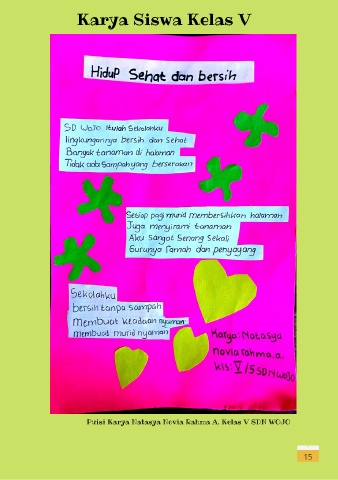 Karya Siswa Kelas V
Hidup Sehat dan bersih
SD WOJO Itulah Sekolahku
lingkungannya bersih dan sehat
Banyak tanaman di halaman
Tidak ada Sampah yang berserakan
Setiap pagi murid membersihkan halaman
Juga menyirami tanaman
Aku sangat Senang Sekali
Gurunya ramah dan penyayang
Sekolahku
bersih tanpa sampah
membuat keadaan nyaman
membuat murid nyaman
Karya: Natasya
novia rahma.a.
kls: V/5 SDN WOJO
Puisi Karya Natasya Novia Rahma A. Kelas V SDN WOJO
15